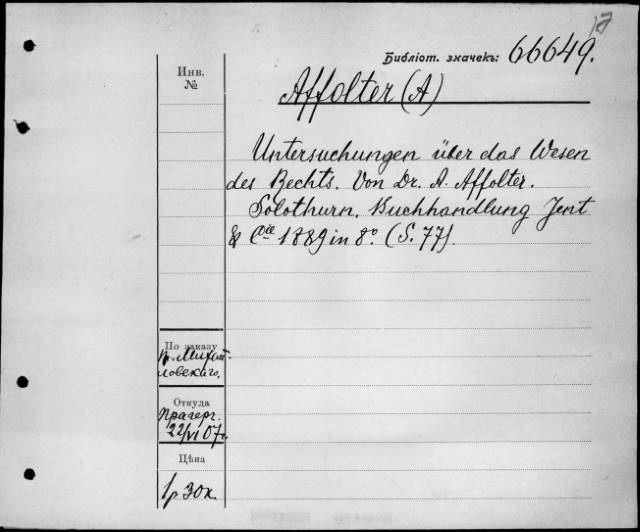 17
Библіот. значекъ: 66649.
Инв.
№
Affolter (A)
Untersuchungen über das Wesen
des Rechts. Von Dr. A. Affolter.
Solothurn. Buchhandlung Jent
& Cie 1889 in 8º. (S. 77).
По заказу
В. Михай-
ловскаго.
Откуда
Прагерг.
22/VI 07.
Цѣна
1 р 30 к.